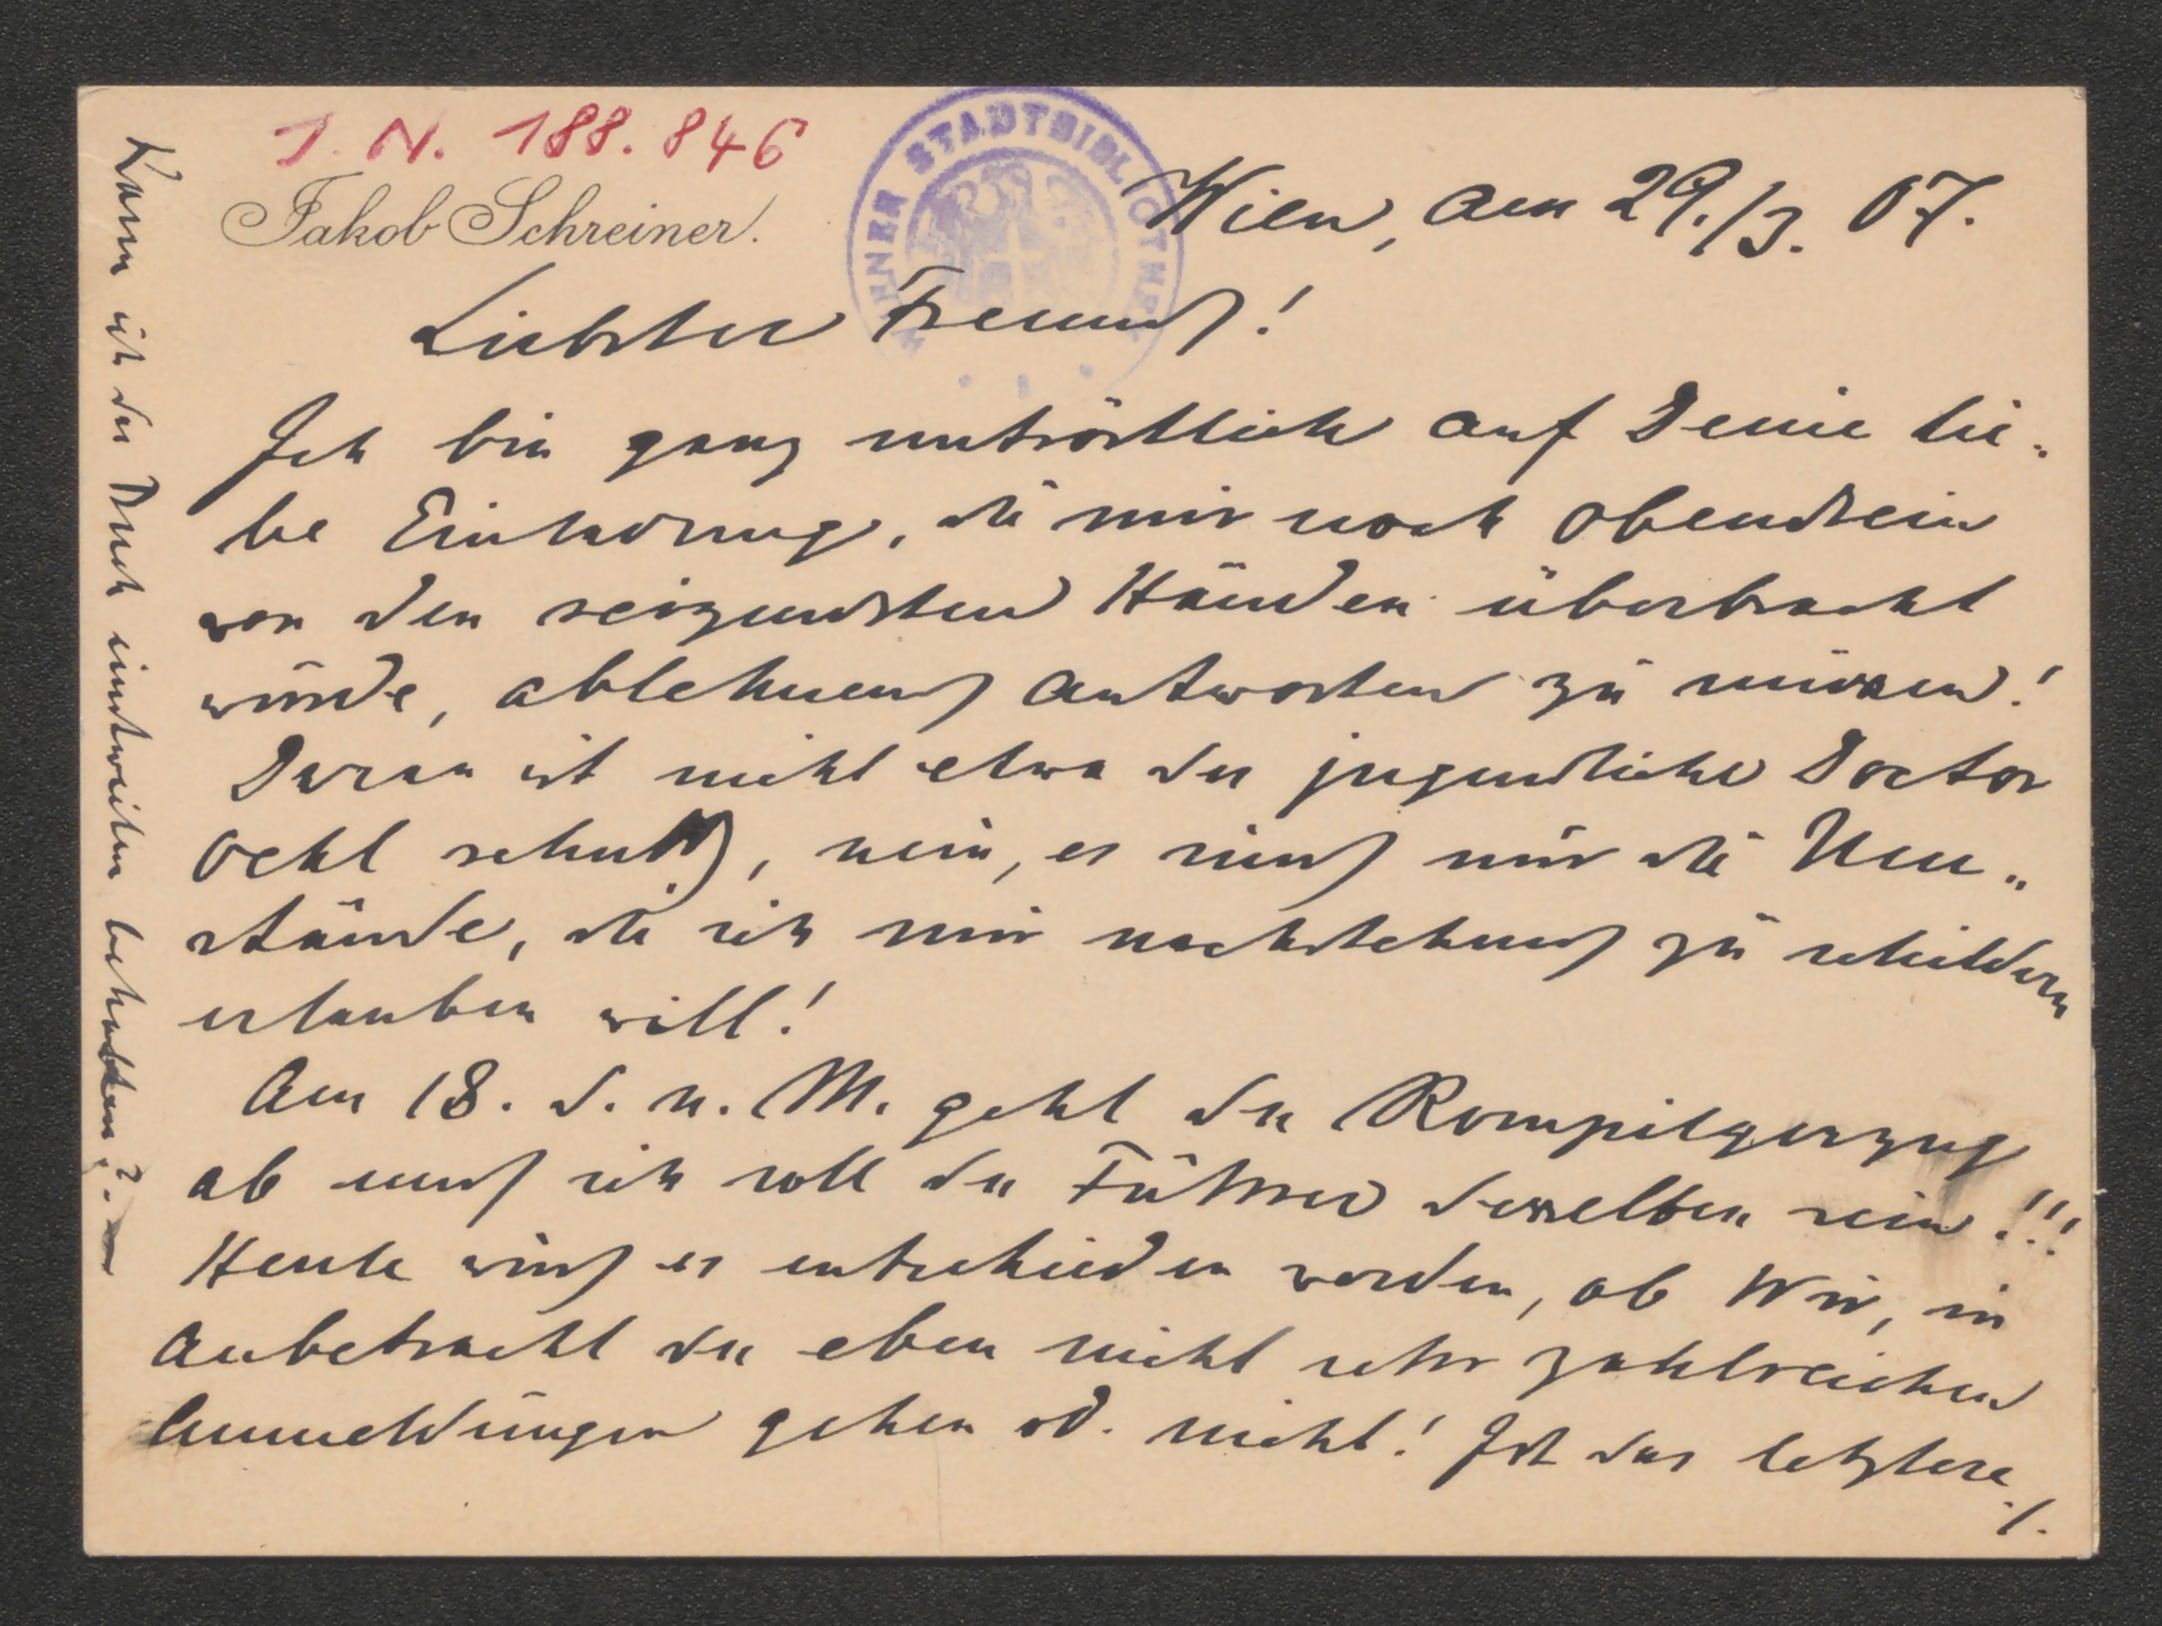 I. N. 188.846
Jakob Schreiner.
WIENER STADTBIBLIOTHEK
Wien, am 29./3. 07.
Liebster Freund!
Ich bin ganz untröstlich auf Deine lie-
be Einladung, die mir noch obendrein
von den reizendsten Händen überbracht
wurde, ablehnend antworten zu müssen!
Daran ist nicht etwa der jugendliche Doctor
Oehl schuld, nein, es sind nur die Um-
stände, die ich mir nachstehend zu schildern
erlauben will!
Am 18. d. n. M. geht der Rompilgerzug
ab und ich soll der Führer desselben sein!!!
Heute wird es entschieden werden, ob Wir, in
Anbetracht der eben nicht sehr zahlreichen
Anmeldungen gehen od. nicht! Ist das letztere
./.
Kann ich das Buch einstweilen behalten?.—